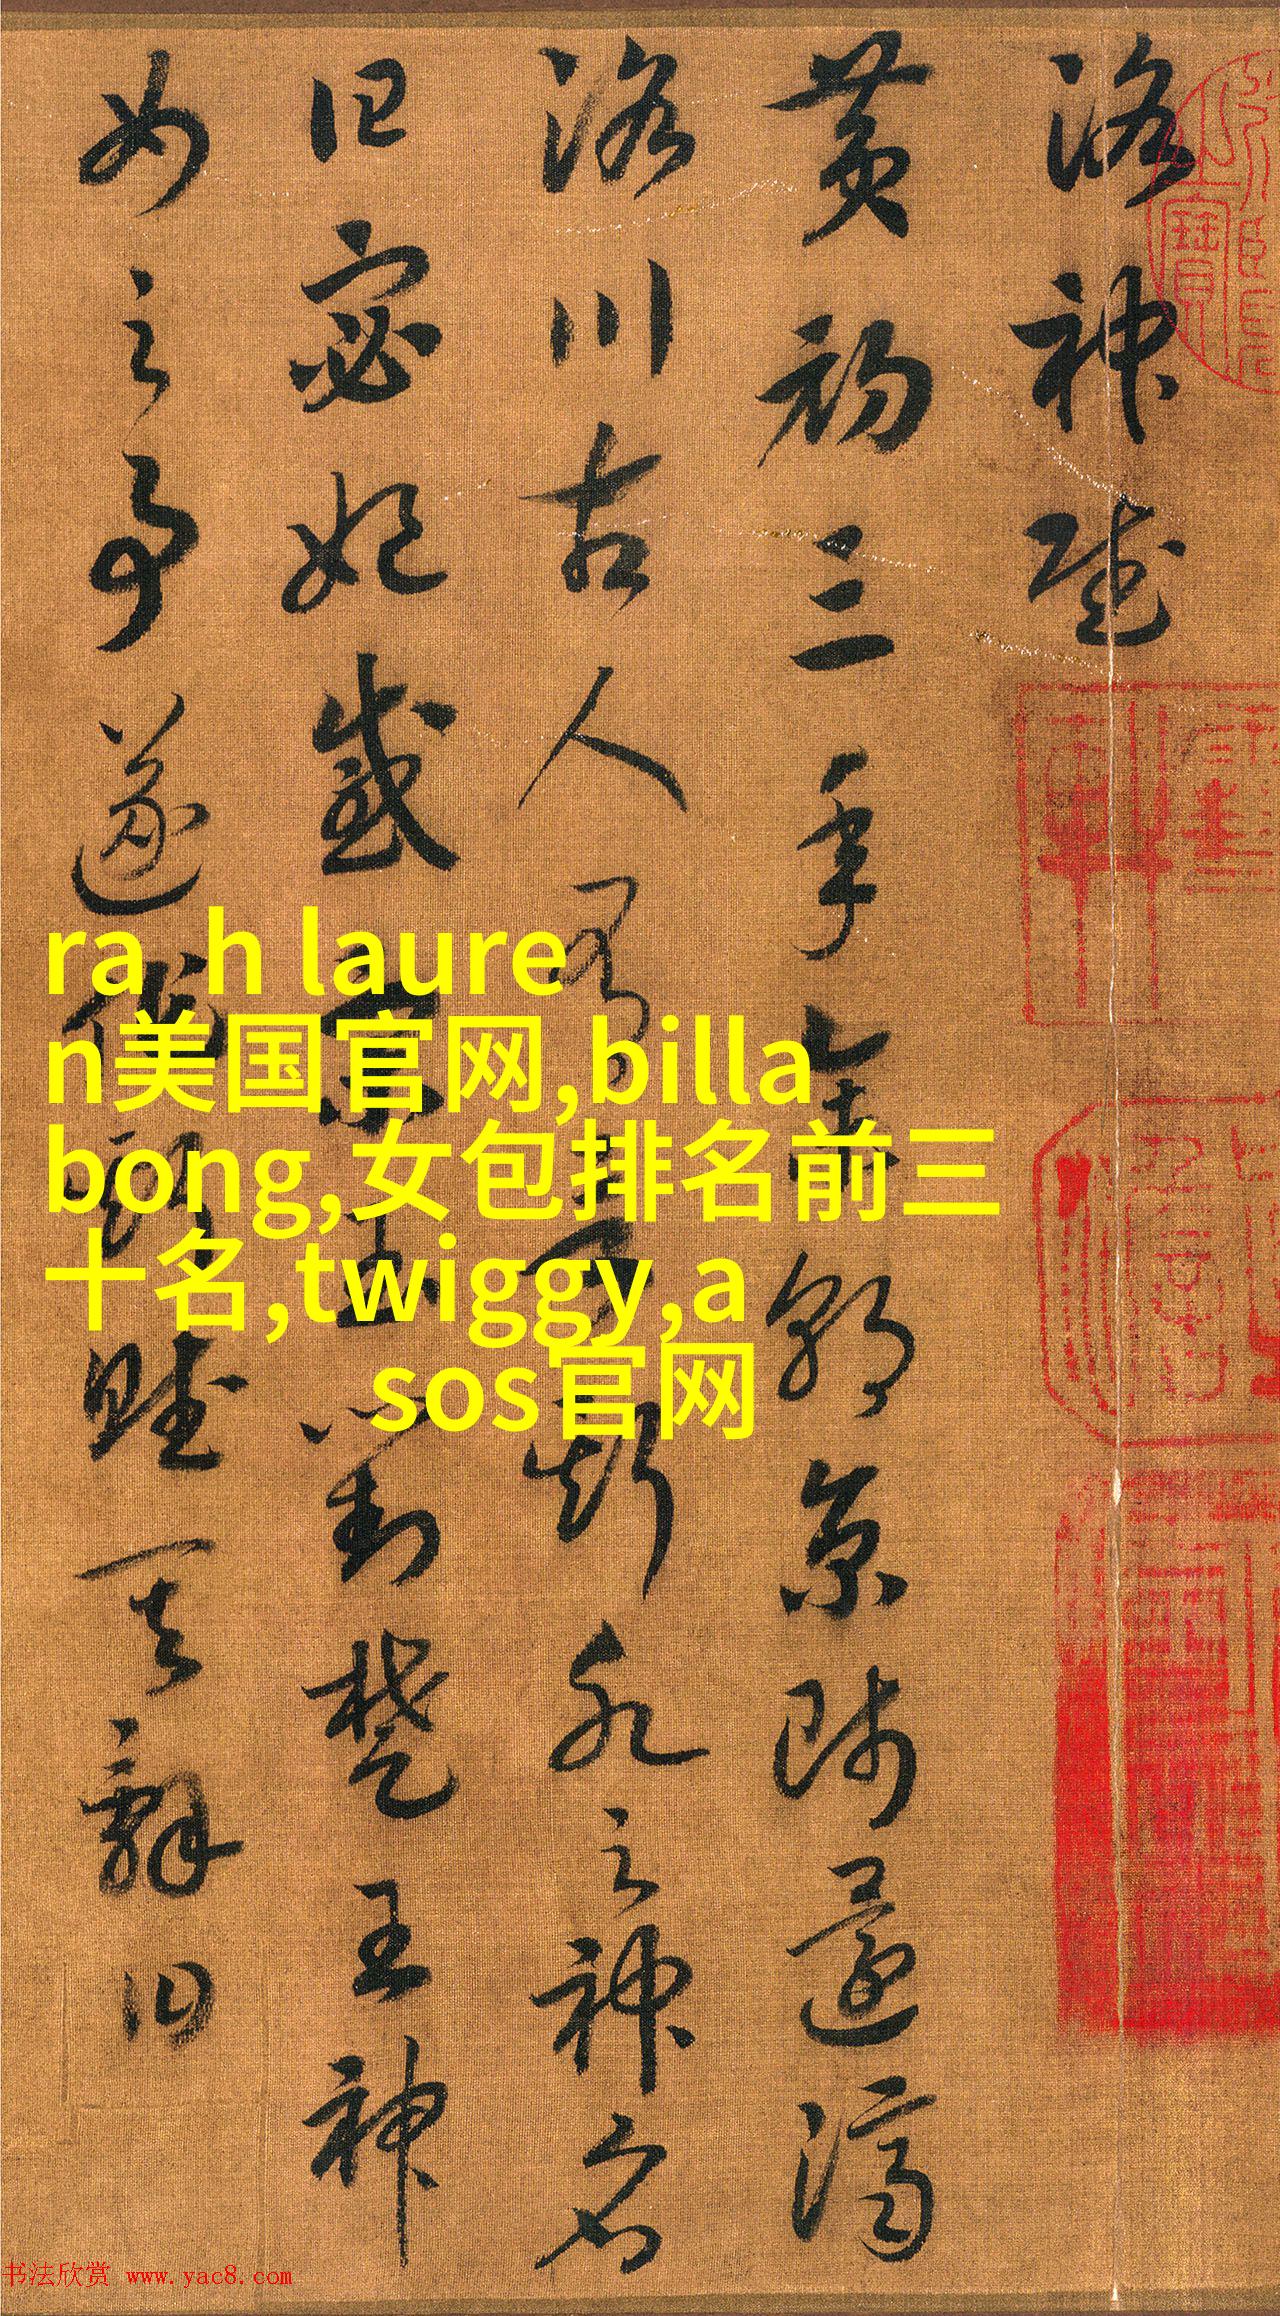 洛神賦
黄初三年余朝京師還濟
洛川古人有言斯水之神名
曰宓妃感宋玉對楚王神
女之事遂作斯賦其辭曰
ra h laure
n美国官网,billa
bong,女包排名前三
十名,twiggy,a
sos官网
书法欣赏 www.yac8.com